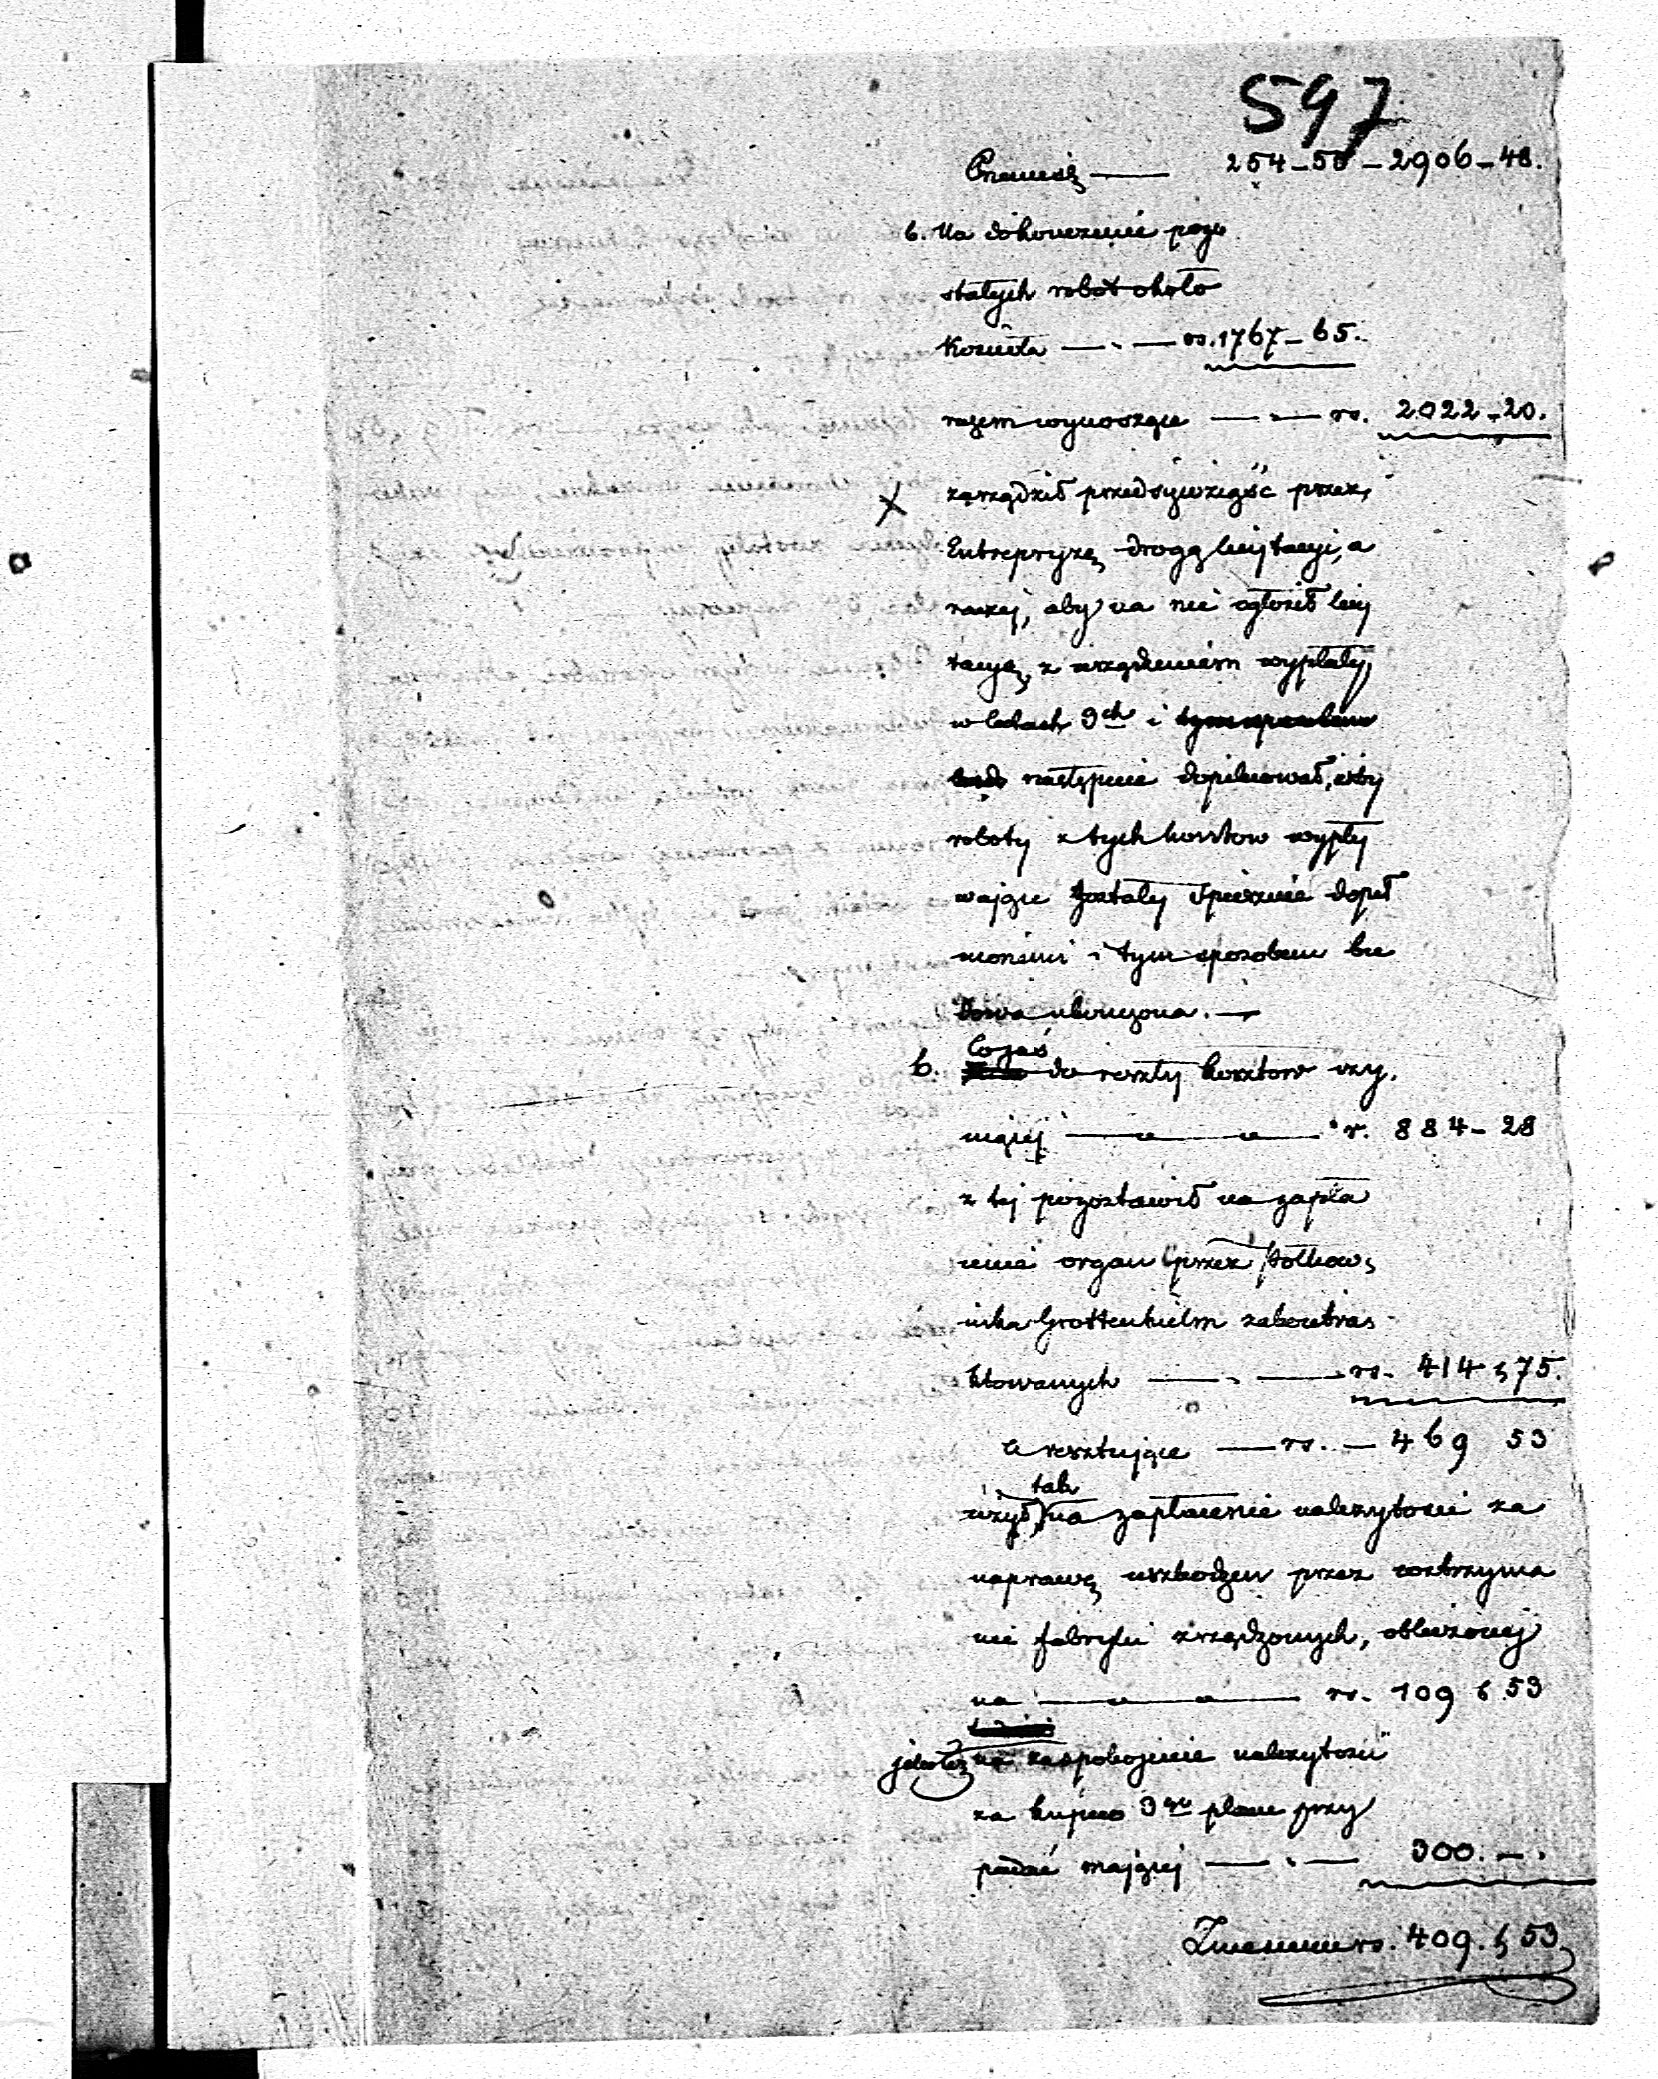 597
Przeniesię —— 254-55-2906-48.
b. Na dokończenié pozo
stałych robot około
Kościoła —"— rs. 1767-65.
razem wynoszące —"— rs. 2022-20.
zarządził przedsięwziąść przez
Entrepryzę drogą licytacyi, a
raczej, aby na nie ogłosił licy
tacyą, z urządzeniem wypłaty
w latach 3ch i tym sposobem
następnie dopilnował, ażby
roboty z tych kosztow wypły
wające zostały spiesznie dopeł
nionemi i tym sposobem bu
dowa ukończona. —
b. Co zaś do reszty kosztow wzy.
nającej —"—"— r. 884-28
z tej pozostawił na zapła
cenié organ przez Półkow,
nika Grottenhielm zakontrak
ktowanych —"— rs. 414 k 75.
a resztujące — rs. — 469 53
użył tak na zapłacenie należytości za
naprawę uszkodzeń przez wstrzyma
nie fabryki zrządzonych, obliczonej
na —"—"— rs. 109 k 53
jako też na zaspokojenie należytości
za kupno 3go planu przy
padać mającej —"— 300. — .
Zniesienie rs. 409. k 53